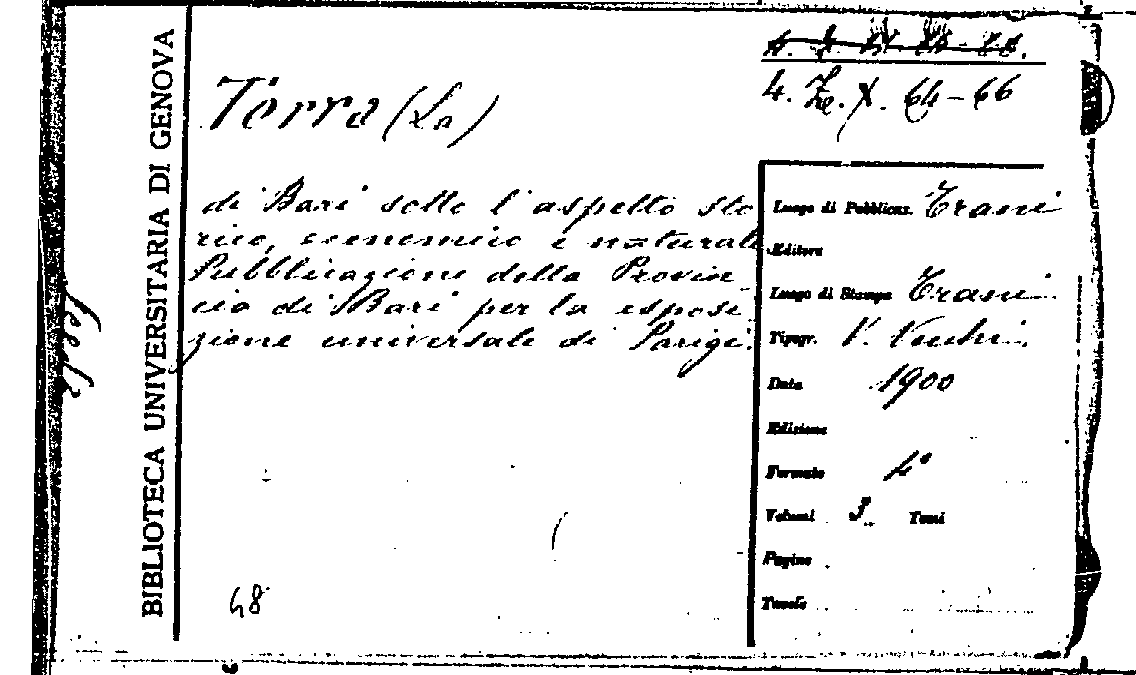 BIBLIOTECA UNIVERSITARIA DI GENOVA
4. Ze. X. 64-66
Terra (La)
di Bari sotto l'aspetto sto
rico, economico e naturale
Pubblicazione della Provin-
cia di Bari per la esposi-
zione universale di Parigi.
Luogo di Pubblicaz. Trani
Editore
Luogo di Stampa Trani
Tipogr. V. Vecchi
Data 1900
Edizione
Formato 4°
Volumi 3 Tomi
Pagine
Tavole
48